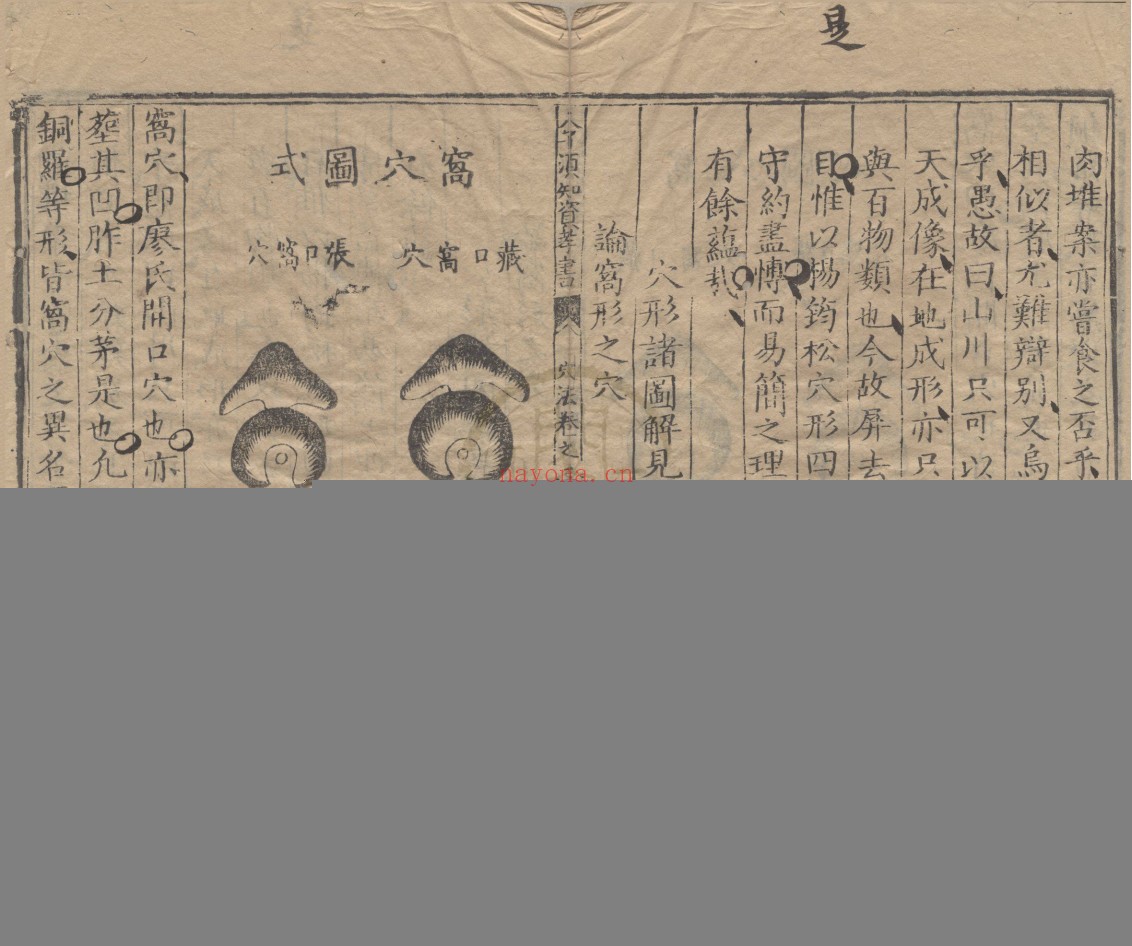 是
肉堆案亦嘗食之否乎
相似者尤難辯別又烏
乎愚故曰山川只可以
天成像在地成形亦只
與百物類也今故屏去
目惟以楊筠松穴形四
守約盡博而易簡之理
有餘蘊哉
穴形諸圖解見
論窩形之穴
人子須知資孝書
穴法卷之
窩穴圖式
藏口窩穴
張口窩穴
窩穴即廖氏開口穴也亦
其凹胙土分茅是也凡
銅羅等形皆窩穴之異名
nayona.cn